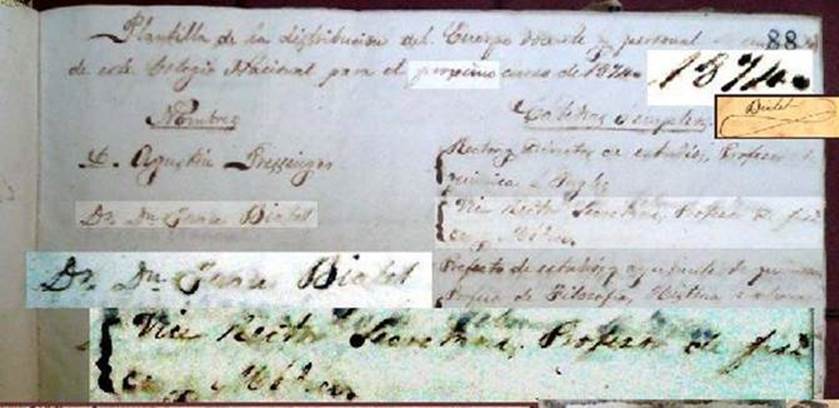 Plantilla de la distribucion del Cuerpo docente y personal
88
de este Colegio Nacional para el proximo curso de 1874
1874
Biolet
Nombres
Catedras
D. Agustin Pressinger
Rector y Director de estudios, Profesor de
quimica é Ingles
Dr. Dn. Juan Biolet
Vice Rector Secretario, Profesor de fisi
ca y
Dr. Dn. Juan Biolet
Prefecto de estudios y ayudante de
Profesor de Filosofia, Historia
Vice Rector Secretario, Profesor de fisi
ca y